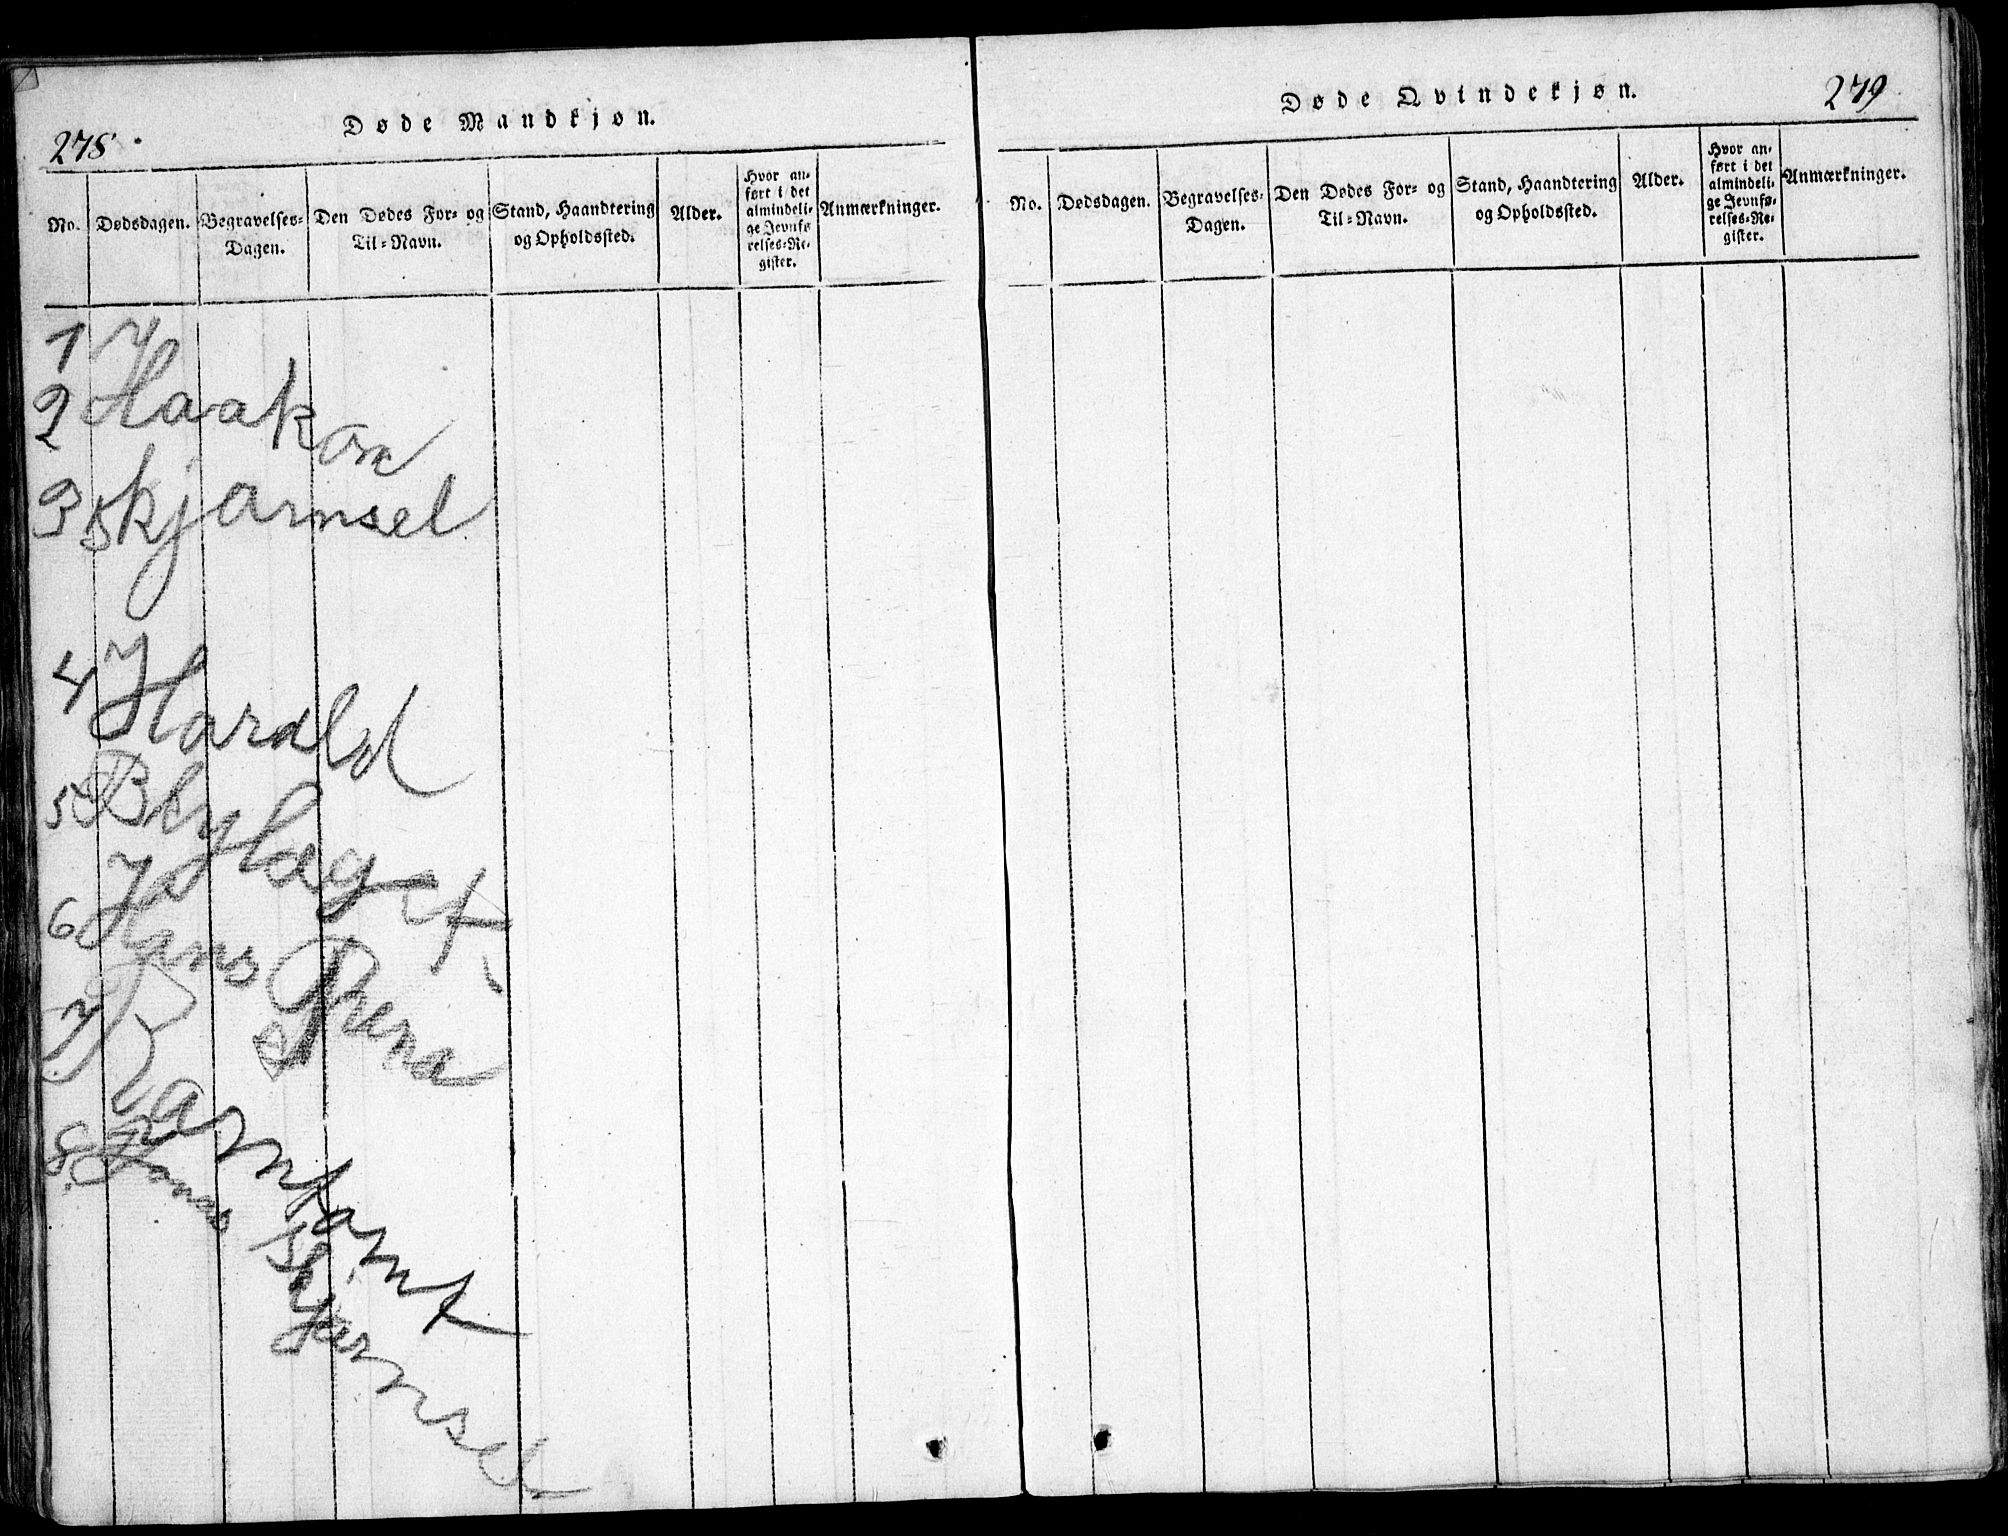 278
Døde Mandkjøn.
No.
Dødsdagen.
Begravelses-
Dagen.
Den Dødes For- og
Til-Navn.
Stand, Haandtering
og Opholdssted.
Alder.
Hvor an-
ført i det
almindeli-
ge Jevnfø-
relses-Re-
gister.
Anmærkninger.
1
2 Haakon
3 Skjarnsel
4 Harald
5
6 Hans
7
8. Hans Skjarnsel
Døde Qvindekjøn.
279
No.
Dødsdagen.
Begravelses-
Dagen.
Den Dødes For- og
Til-Navn.
Stand, Haandtering
og Opholdssted.
Alder.
Hvor an-
ført i det
almindeli-
ge Jevnfø-
relses-Re-
gister.
Anmærkninger.